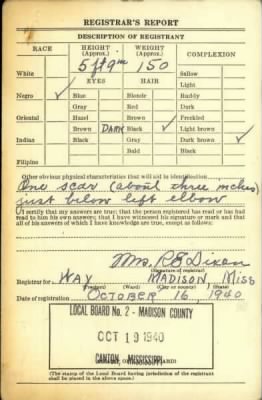 REGISTRAR'S REPORT
DESCRIPTION OF REGISTRANT
RACE HEIGHT (Approx.) WEIGHT (Approx.) COMPLEXION
5 ft 9 in 150
White Sallow
EYES HAIR Light
Negro ✓ Blue Blonde Ruddy
Gray Red Dark
Oriental Hazel Brown Freckled
Brown DARK Black ✓ Light brown
Indian Black Gray Dark brown ✓
Bald Black
Filipino
Other obvious physical characteristics that will aid in identification
One scar (about three inches)
just below left elbow
I certify that my answers are true; that the person registered has read or has had
read to him his own answers; that I have witnessed his signature or mark and that
all of his answers of which I have knowledge are true, except as follows:
Mrs. R E Dixon
(Signature of registrar)
Registrar for WAY MADISON, MISS
(Precinct) (Ward) (City or county) (State)
Date of registration OCTOBER 16, 1940
LOCAL BOARD No. 2 - MADISON COUNTY
OCT 19 1940
CANTON, MISSISSIPPI
(The stamp of the Local Board having jurisdiction of the registrant
shall be placed in the above space)